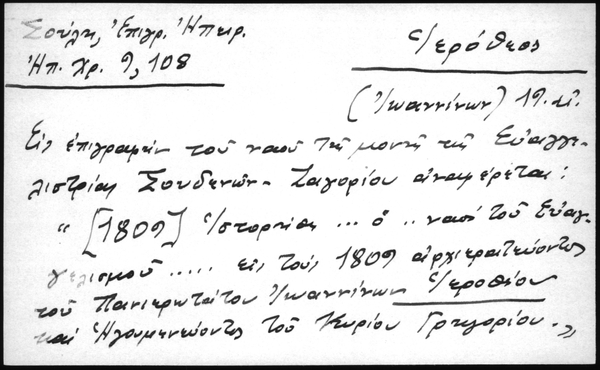 Σούλη, Ἐπιγρ. Ἠπειρ.
Ἠπ. Χρ. 9, 108
Ἱερόθεος
(Ἰωαννίνων) 19. αἰ.
Εἰς ἐπιγραφὴν τοῦ ναοῦ τῆς μονῆς τῆς Εὐαγγε-
λιστρίας Σουδενῶν - Ζαγορίου ἀναφέρεται:
“ [1809] Ἱστορήθη ... ὁ .. ναὸς τοῦ Εὐαγ-
γελισμοῦ ..... εἰς τοὺς 1809 ἀρχιερατεύοντος
τοῦ Πανιερωτάτου Ἰωαννίνων Ἱεροθέου
καὶ Ἡγουμενεύοντος τοῦ Κυρίου Γρηγορίου. „